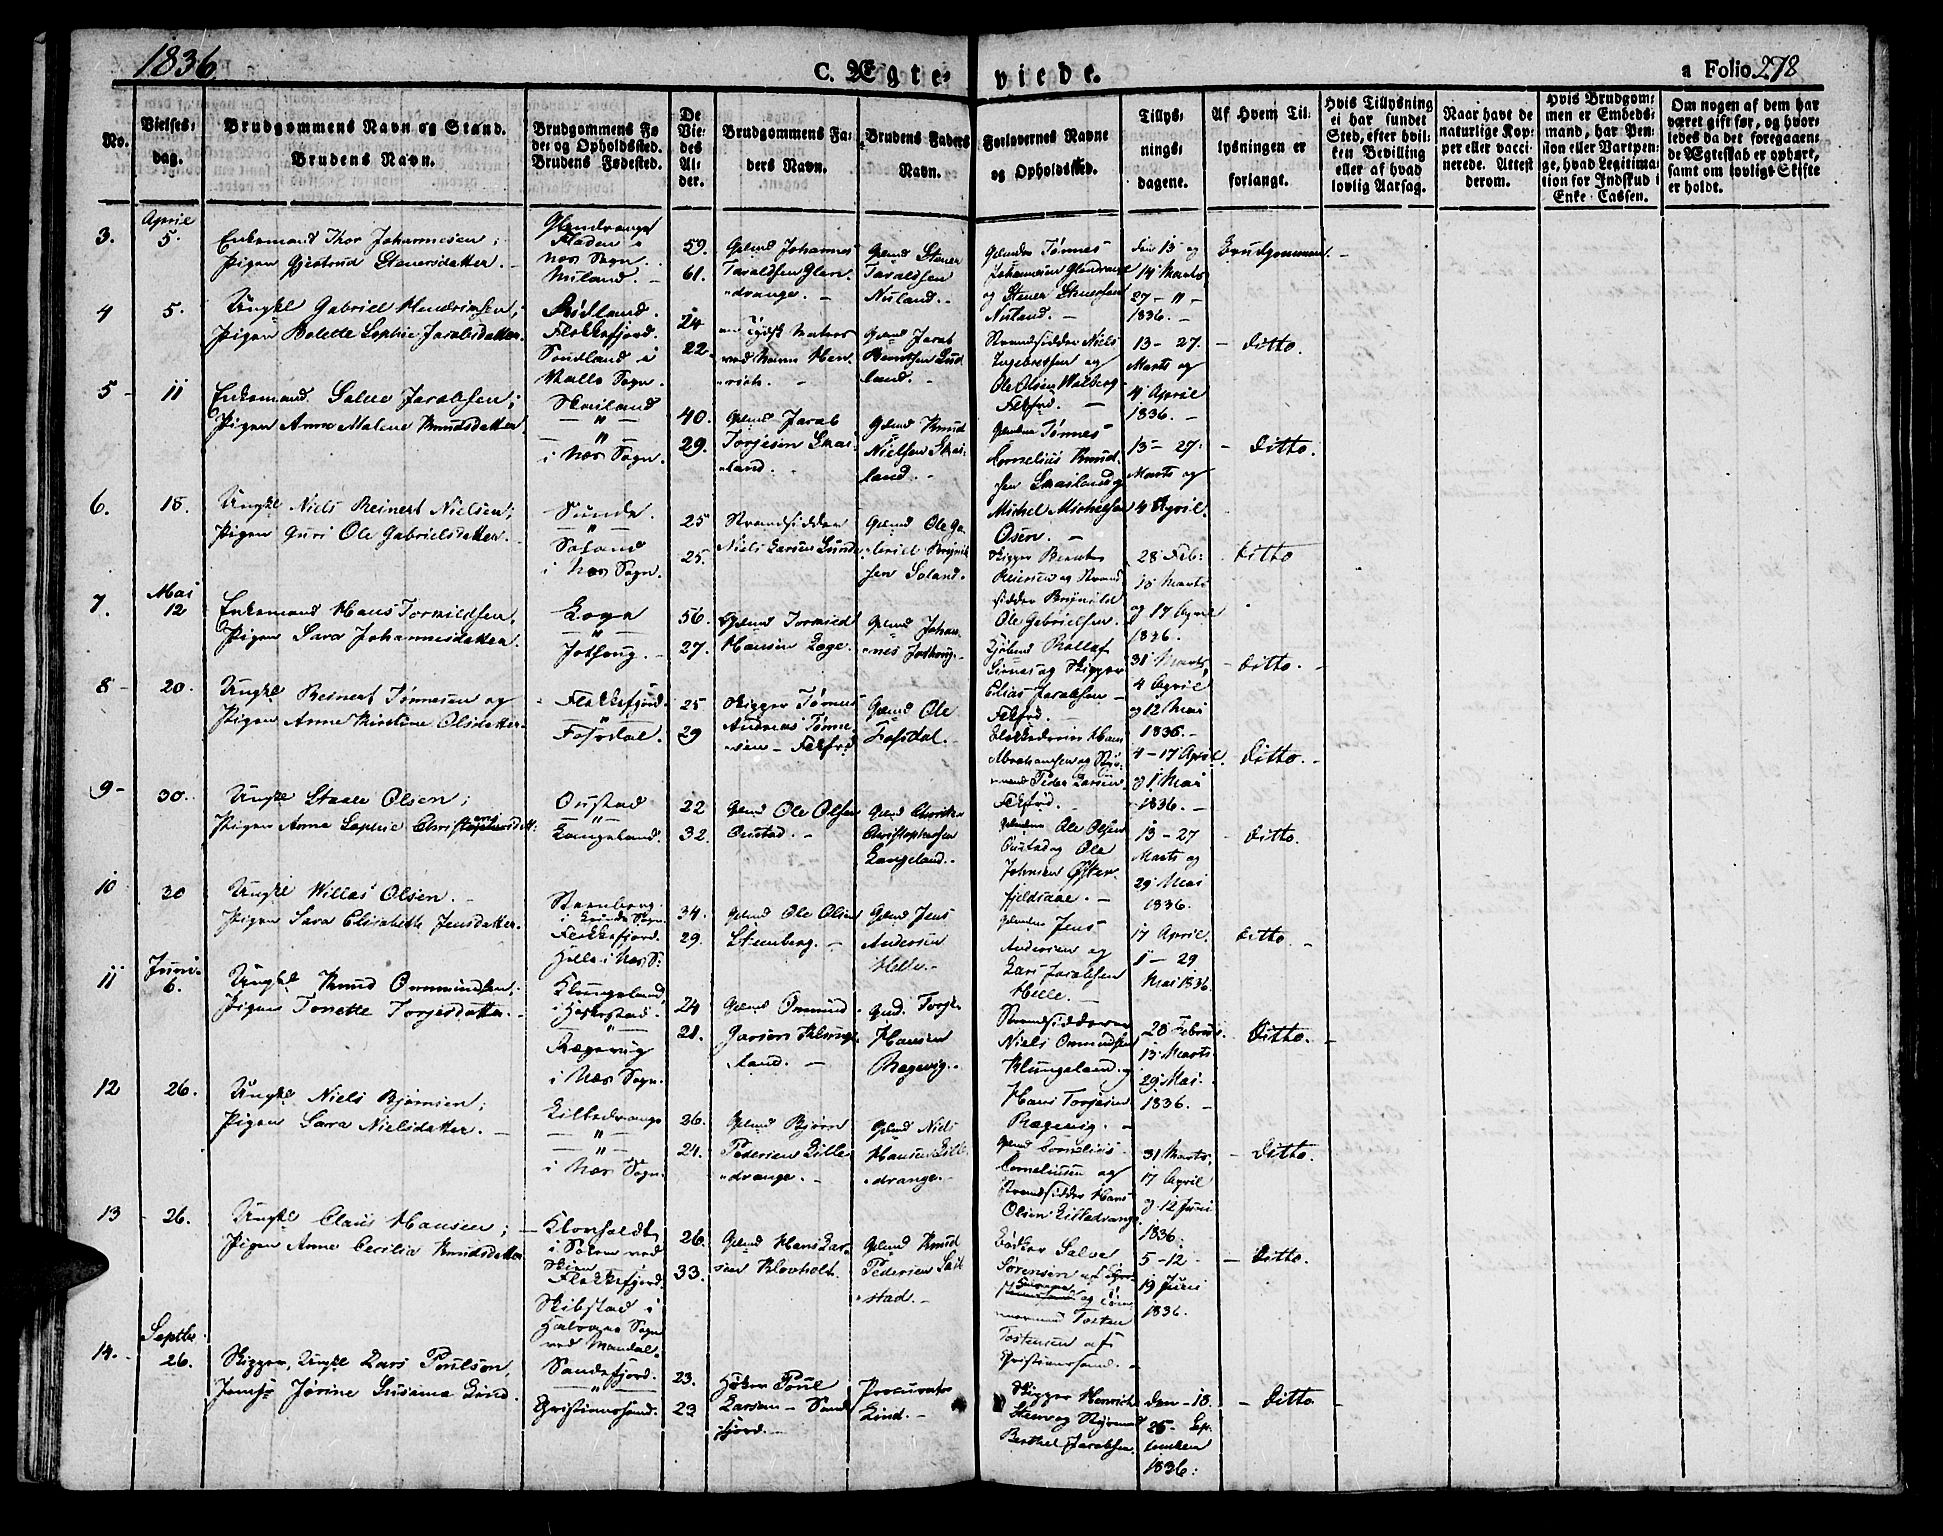 1836
C. Ægteviede.
a Folio 278
No.
Vielsesdag.
Brudgommens Navn og Stand.
Brudens Navn.
Brudgommens Føde- og Opholdssted.
Brudens Fødested.
De Viedes Alder.
Brudgommens Faders Navn.
Brudens Faders Navn.
Forlovernes Navne og Opholdssted.
Tillysningsdagene.
Af Hvem Tillysningen er forlangt.
Hvis Tillysning ei har fundet Sted, efter hvilken Bevilling eller af hvad lovlig Aarsag.
Naar have de naturlige Kopper eller vaccinerede. Attest derom.
Hvis Brudgommen er Embedsmand, har Pension eller Vartpenge, hvad Legitimation for Indskud i Enke-Cassen.
Om nogen af dem har været gift før, og hvorledes da det foregaaende Ægteskab er ophørt, samt om lovligt Skifte er holdt.
3.
April
5.
Enkemand Thor Johannesen;
Pigen Gjertrud Steuersdatter.
Glendrange
Fladen i
Nes Sogn.
Nuland.
59.
61.
Gmd Johannes
Taraldsen Glen-
drange.
Gmd Steuer
Taraldsen
Nuland.
Tønnes
Johannesen Glendrange
og Steuer Steuersen
Nuland.
Den 13 og
14 Marts
27 - 11 -
1836.
Brudgommen.
4
5.
Ungkl Gabriel Hendrichsen;
Pigen Bolette Sophie Jacobsdatter.
Flekkefjord.
Sundland i
Halle Sogn.
24
22.
en Tydsk Matros
ved Navn Hen-
rich.
Gmd Jacob
Berntsen Sund-
land.
Strandsidder Niels
Ingebretsen og
Ole Olsen Walberg
Flkfrd.
13 - 27.
Marts og
4 April
1836.
ditto.
5
11
Enkemand Salve Jacobsen;
Pigen Anna Malene Knudsdatter.
Skailand
i Nes Sogn.
40.
29.
Gmd Jacob
Torjesen Skai-
land.
Gmd Knud
Nielsen Skai-
land.
Tønnes
Cornelius Knud-
sen Skailand og
Michel Michelsen
Osen.
13 - 27.
Marts og
4 April.
ditto.
6.
18.
Ungkl Niels Reinert Nielsen;
Pigen Guri Ole Gabrielsdatter.
Sunde.
Soland
i Nes Sogn.
25
25.
Strandsidder
Niels Larsen Sunde
Gmd Ole Ga-
briel Brynild-
sen Soland.
Skipper Bernt
Reiersen og Strand-
sidder Brynild
Ole Gabrielsen.
28 Feb:
18 Marts
og 17 April
1836.
ditto
7.
Mai
12
Enkemand Hans Tormildsen,
Pigen Sara Johannesdatter.
Loge
56.
27.
Gmd Tormild
Hansen Loge.
Gmd Johan-
nes
Rolløf
og Skipper
Elias Jacobsen
Flkfrd.
31 Marts,
4 April
og 12 Mai
1836.
ditto.
8
20.
Ungkl Reinert Tønnesen og
Pigen Anne Kirstine Olsdatter.
Flekkefjord.
Fosdal.
25
29
Skipper Tønnes
Andreas Tønne-
sen Flkfrd
Gmd Ole
Fosdal.
Hans
Abrahamsen og Styr-
mand Peder Larsen
Flkfrd.
4 - 17 April
og 1 Mai
1836.
ditto.
9
30.
Ungkl Staale Olsen;
Pigen Anna Sophie Christophersdatt:
Oustad
Langeland.
22
32.
Gmd Ole Olsen
Oustad.
Gmd
Christophersen
Langeland.
Ole Olsen
Oustad og Ole
Johnsen Øster-
fjeldsaae.
13 - 27
Marts og
29 Mai
1836.
ditto.
10
30
Ungkl Willas Olsen.
Pigen Sara Elisabeth Jensdatter.
Steenberg
i Lunde Sogn.
Flekkefjord.
Helle i Nes S:
34.
29.
Gmd Ole Olsen
Steenberg.
Gmd Jens
Andersen
Helle.
Jens
Andersen og
Lars Jacobsen
Helle.
17 April.
1 - 29
Mai 1836
ditto.
11
Juni
6.
Ungkl Knud Ommundsen;
Pigen Tonette Torjesdatter.
Klungeland
i Heskestad.
Ragevig
i Nes Sogn.
24
21.
Gmd Ommund
Klunge-
land.
Gmd. Torje
Hansen
Ragevig.
Strandsidderne
Niels Ommundsen
Klungeland og
Hans Torjesen
Ragevig.
28 Februar
13 Marts
29 Mai
1836.
ditto.
12
26.
Ungkl Niels Bjørnsen;
Pigen Sara Nielsdatter.
Lilledrange
i Nes Sogn.
26.
24.
Gmd Bjørn
Pedersen Lille-
drange.
Gmd Niels
Hansen Lille-
drange.
Gmd Cornelius
Corneliusen og
Strandsidder Hans
Olsen Lilledrange
31 Marts,
17 April
og 12 Juni
1836.
ditto.
13
26.
Ungkl Claus Hansen;
Pigen Anne Cecilia Knudsdatter
Klovholdt
i Solum ved
Skien
Flekkefjord.
Skibstad i
Halvaae Sogn
ved Mandal.
26.
33.
Gmd Hans Lar-
sen Klovholt.
Gmd Knud
Pedersen Skib-
stad.
Bødker Salve
Sørensen af
og Tøm-
mermand Tosten
Tostensen af
Christianssand.
5 - 12 -
19 Juni
1836.
ditto.
14.
Septbr.
26.
Skipper, Ungkl Lars Poulsen,
Jomfr Jørine Susanna Lind.
Sandefjord.
Christianssand.
23.
23
Poul
Larsen - Sande-
fjord.
Procurator
Lind.
Skipper Henrich
Steen og Styrmand
Berthel Jacobsen.
den - 18.
25 - Sep-
tember
1836.
ditto